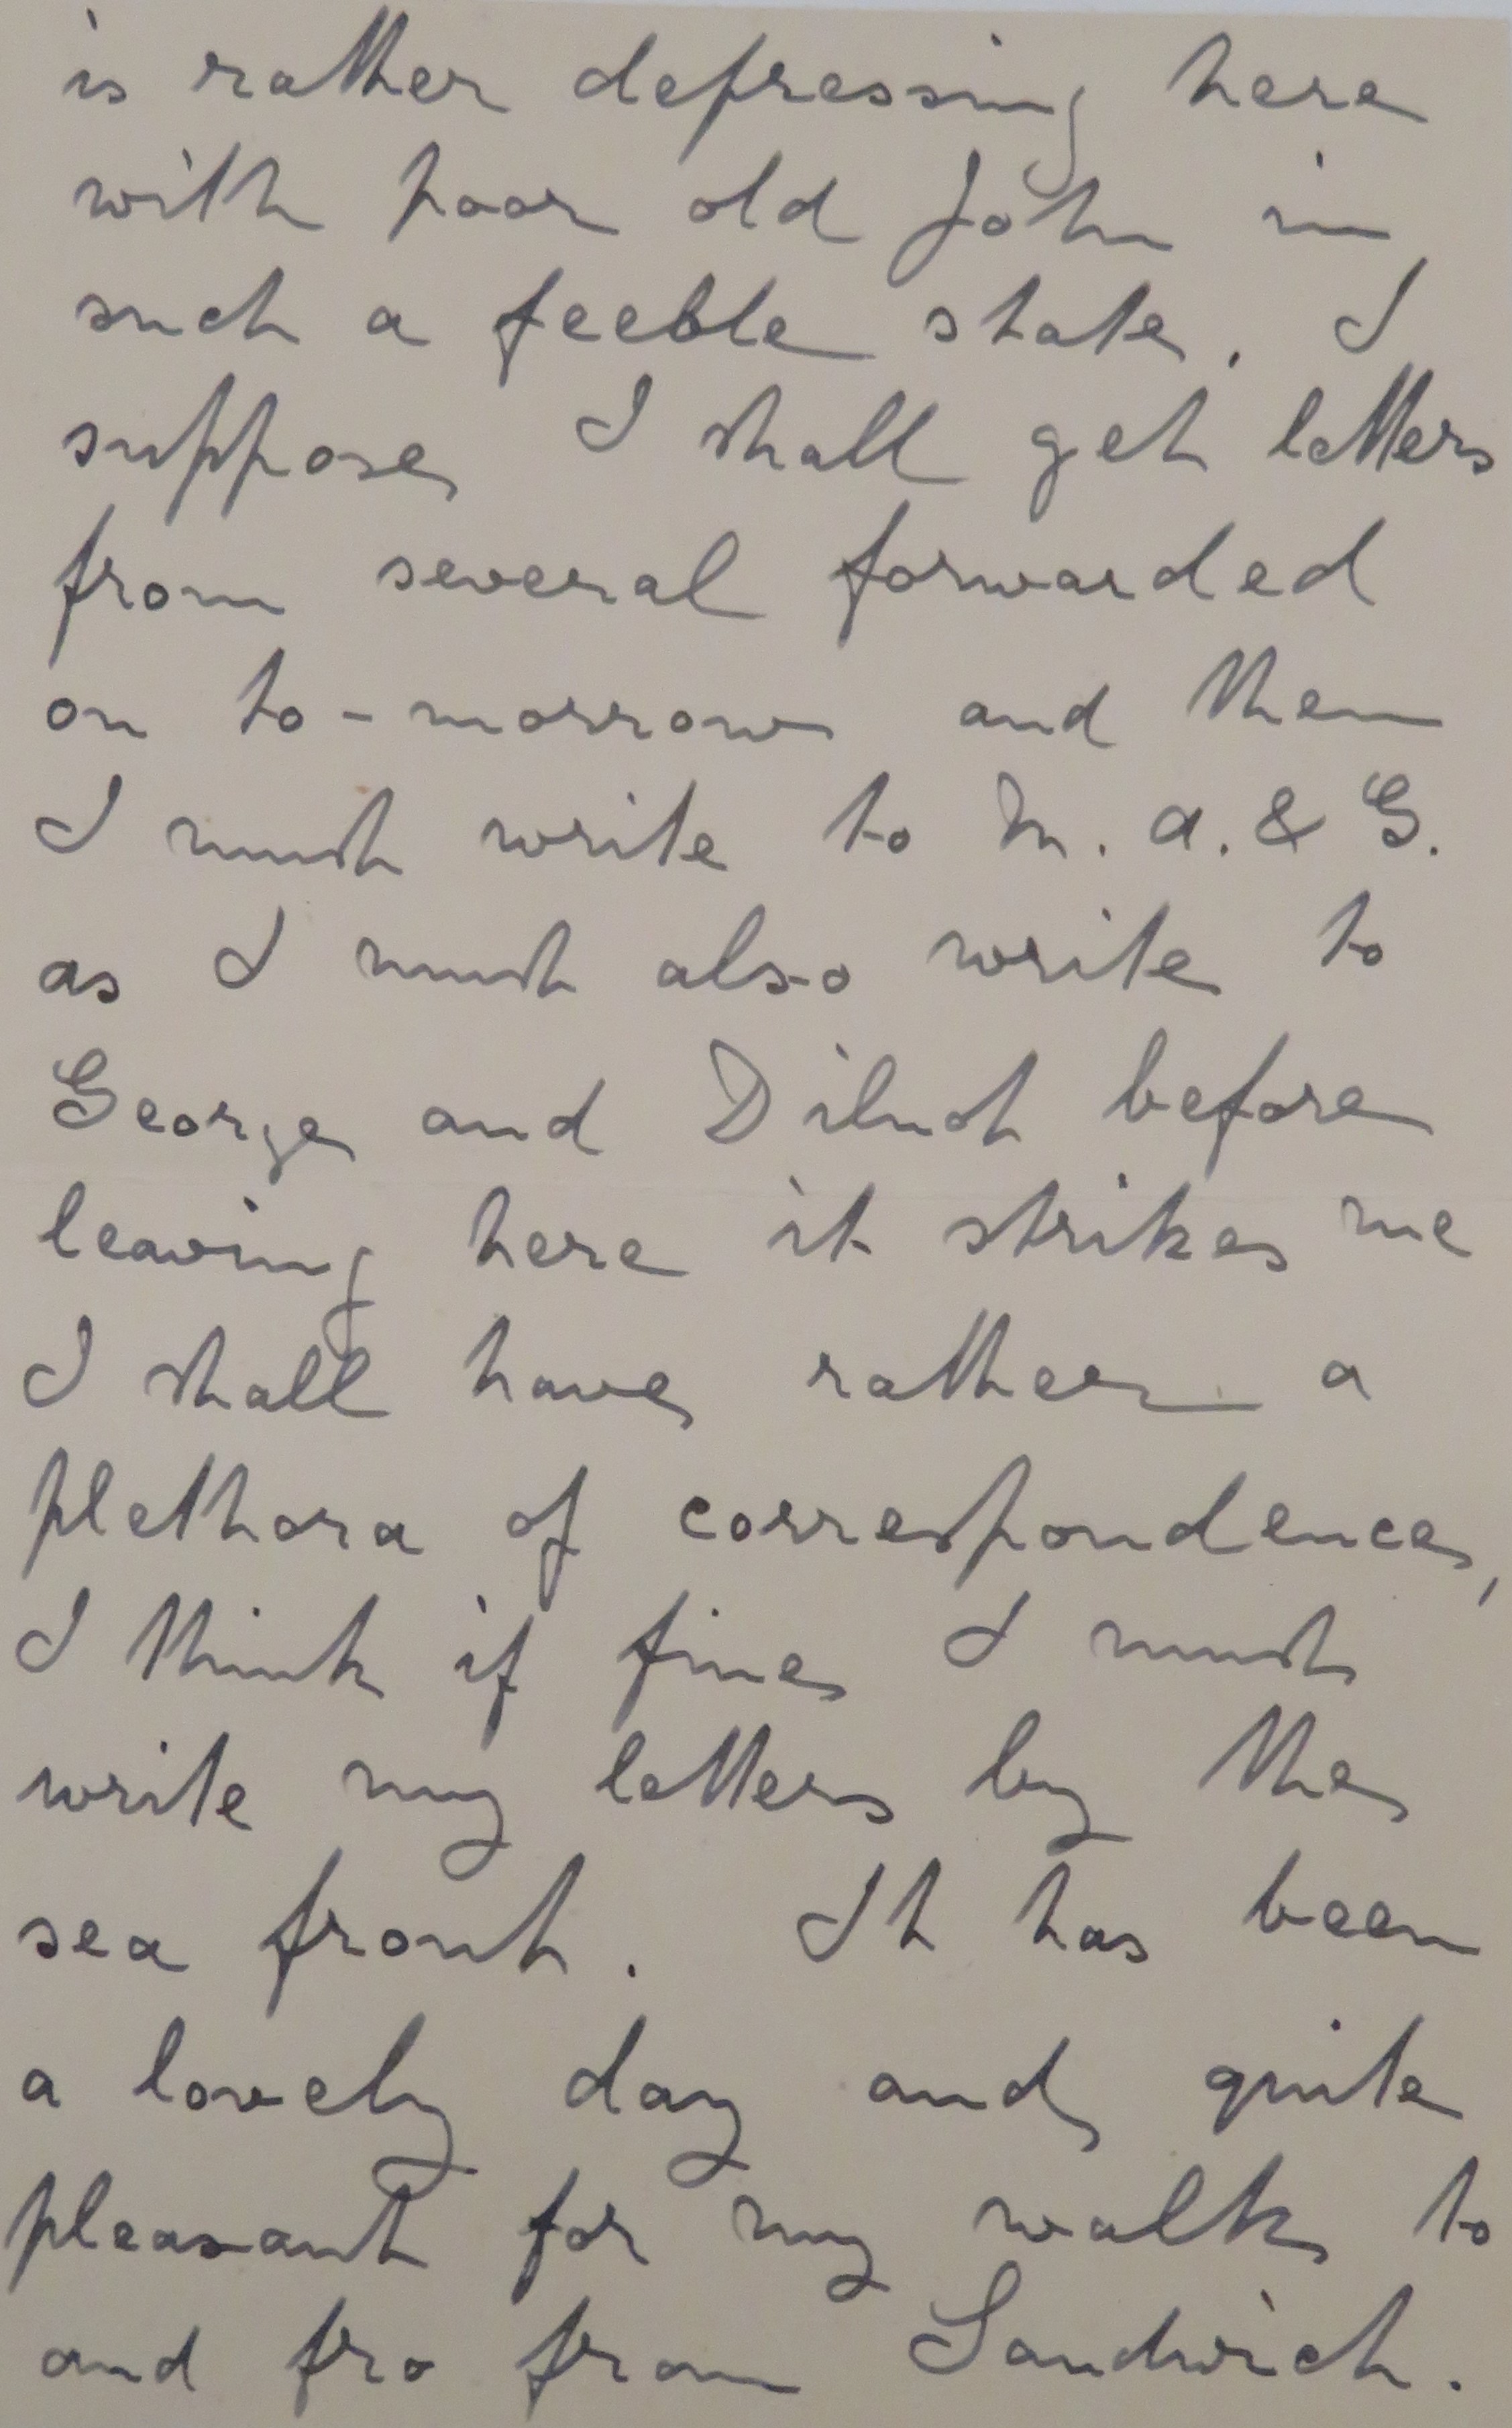 is rather depressing here
with poor old John in
such a feeble state. I
suppose I shall get letters
from several forwarded
on to-morrow and then
I must write to M. A. & G.
as I must also write to
George and before
leaving here it strikes me
I shall have rather a
plethora of correspondence,
I think if fine I must
write my letters by the
sea front. It has been
a lovely day and quite
pleasant for my walk to
and fro from Sandwich.